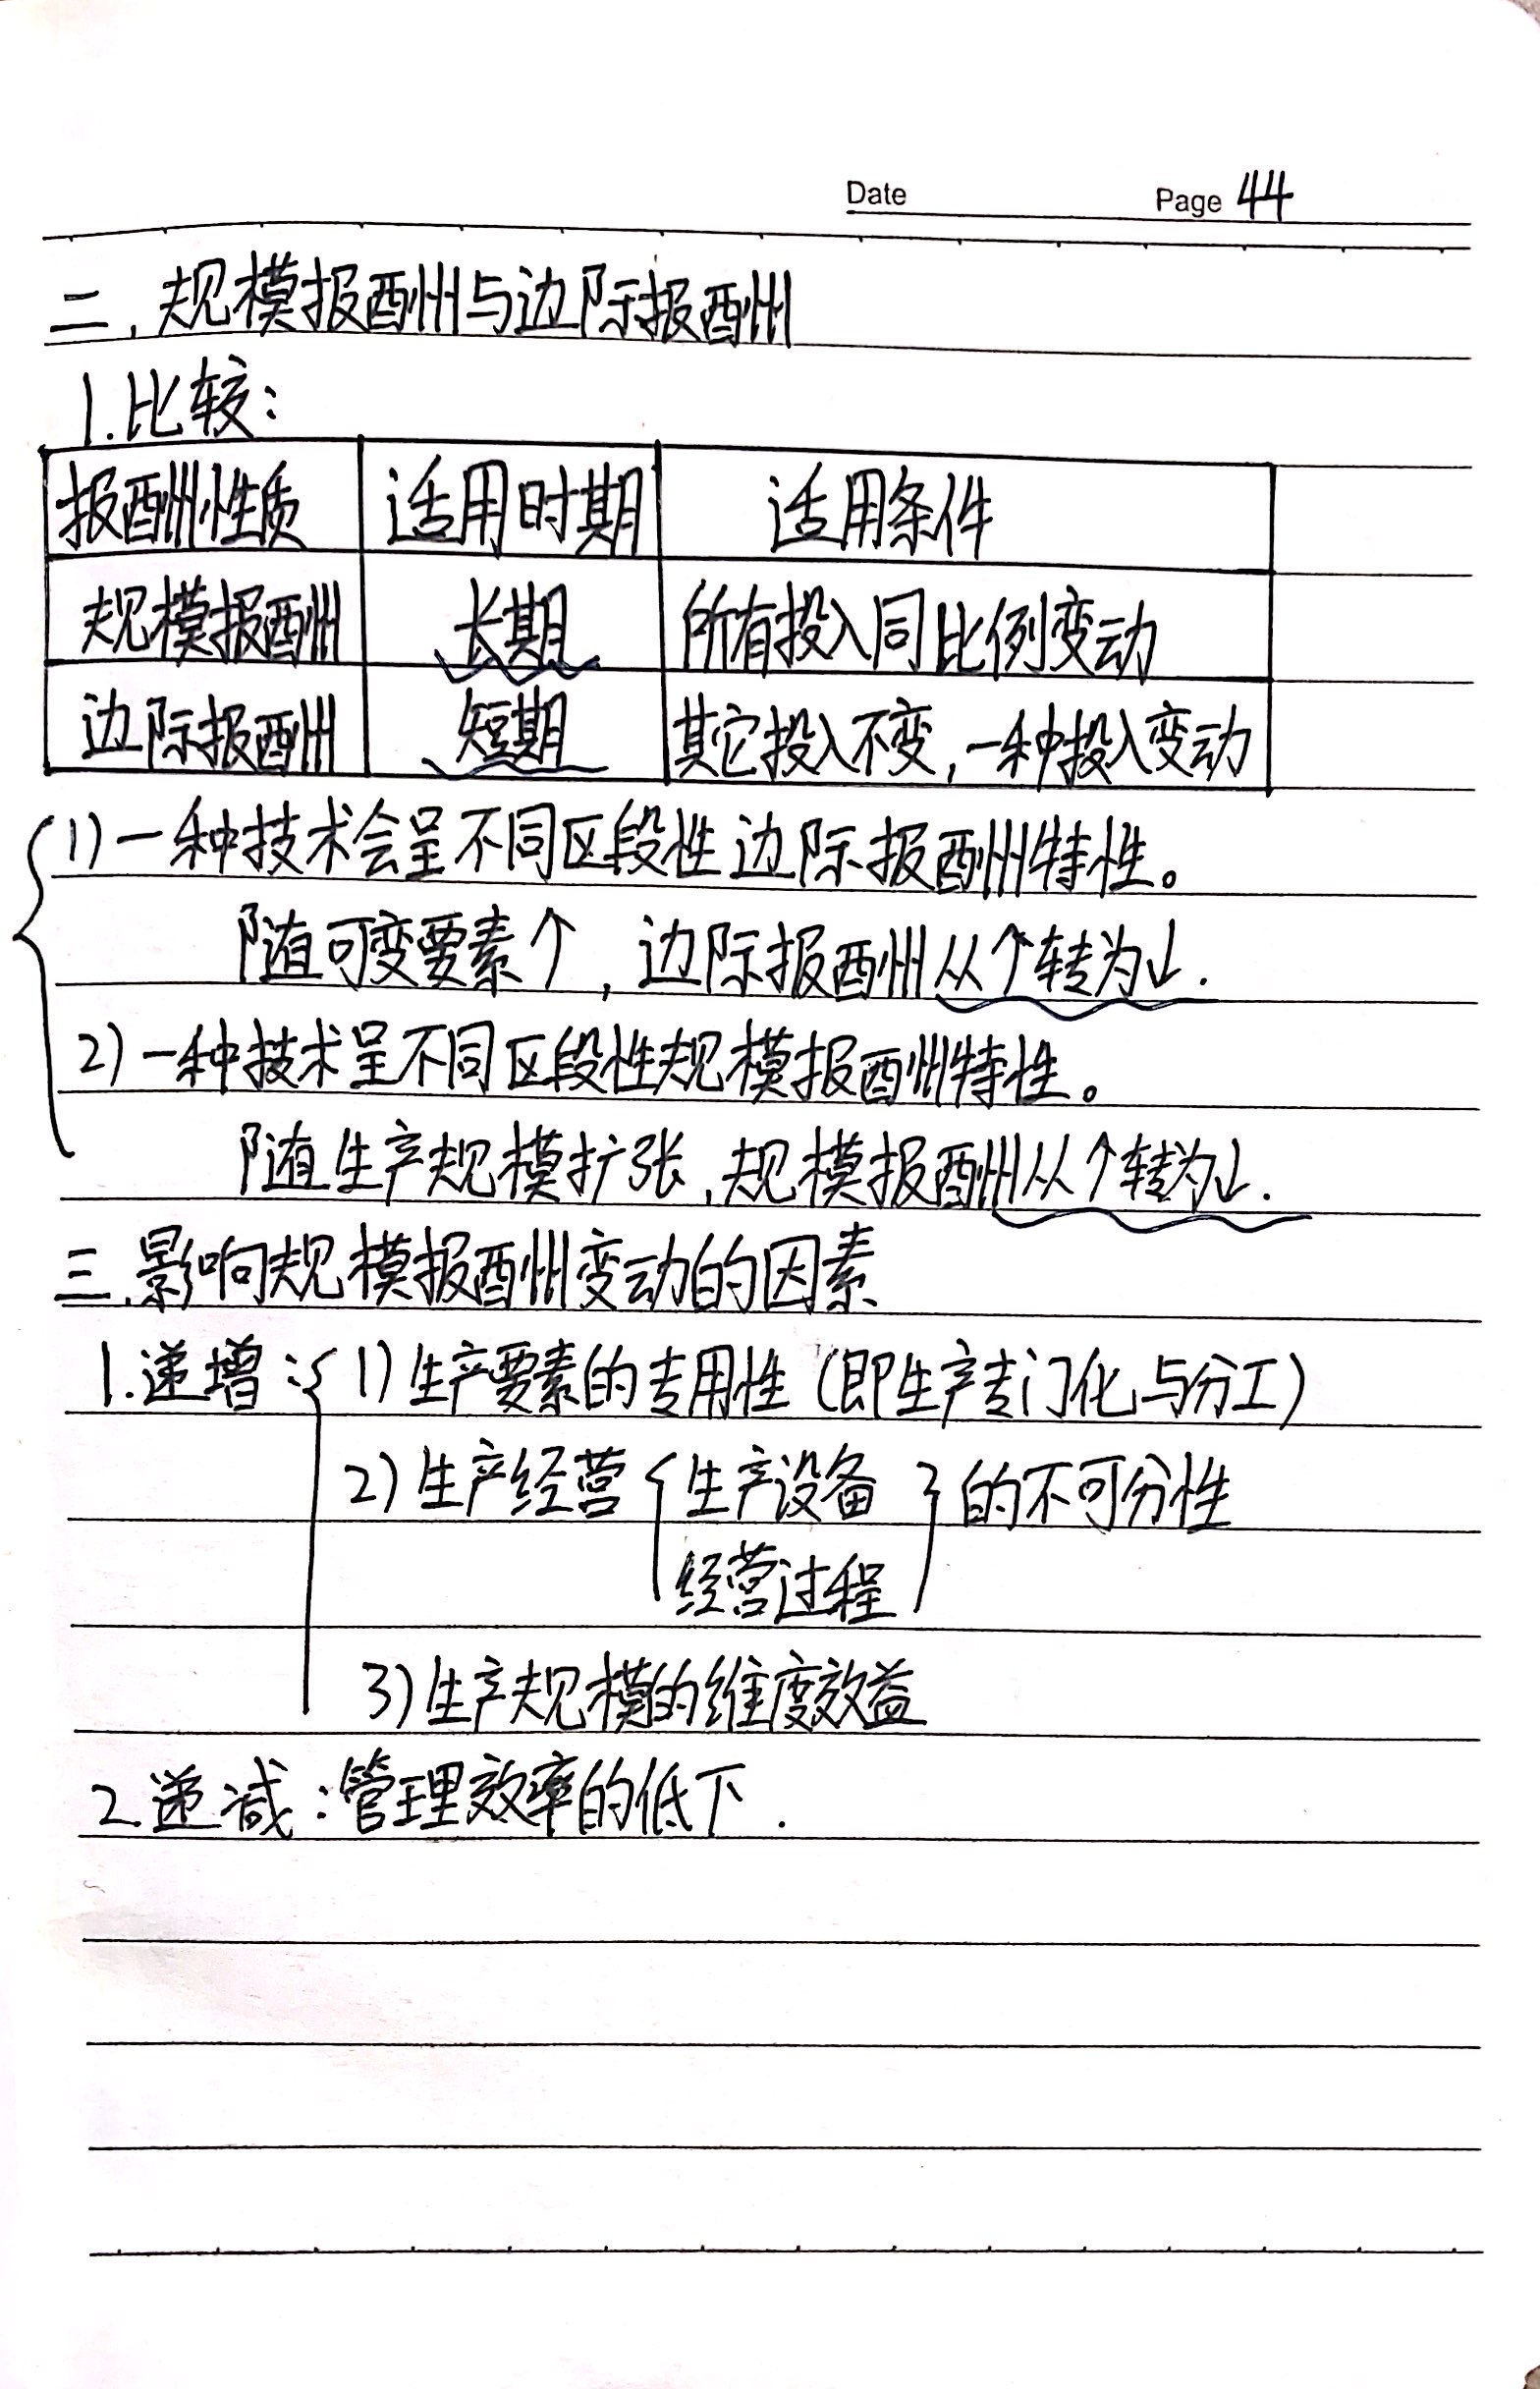 Date Page 44
二、规模报酬与边际报酬
1.比较：
报酬性质 适用时期 适用条件
规模报酬 长期 所有投入同比例变动
边际报酬 短期 其它投入不变，一种投入变动
1)一种技术会呈不同区段性边际报酬特性。
随可变要素↑，边际报酬从↑转为↓.
2)一种技术呈不同区段性规模报酬特性。
随生产规模扩张，规模报酬从↑转为↓.
三.影响规模报酬变动的因素
1.递增：{ 1)生产要素的专用性（即生产专门化与分工）
2)生产经营{生产设备}的不可分性
经营过程
3)生产规模的维度效益
2.递减：管理效率的低下.